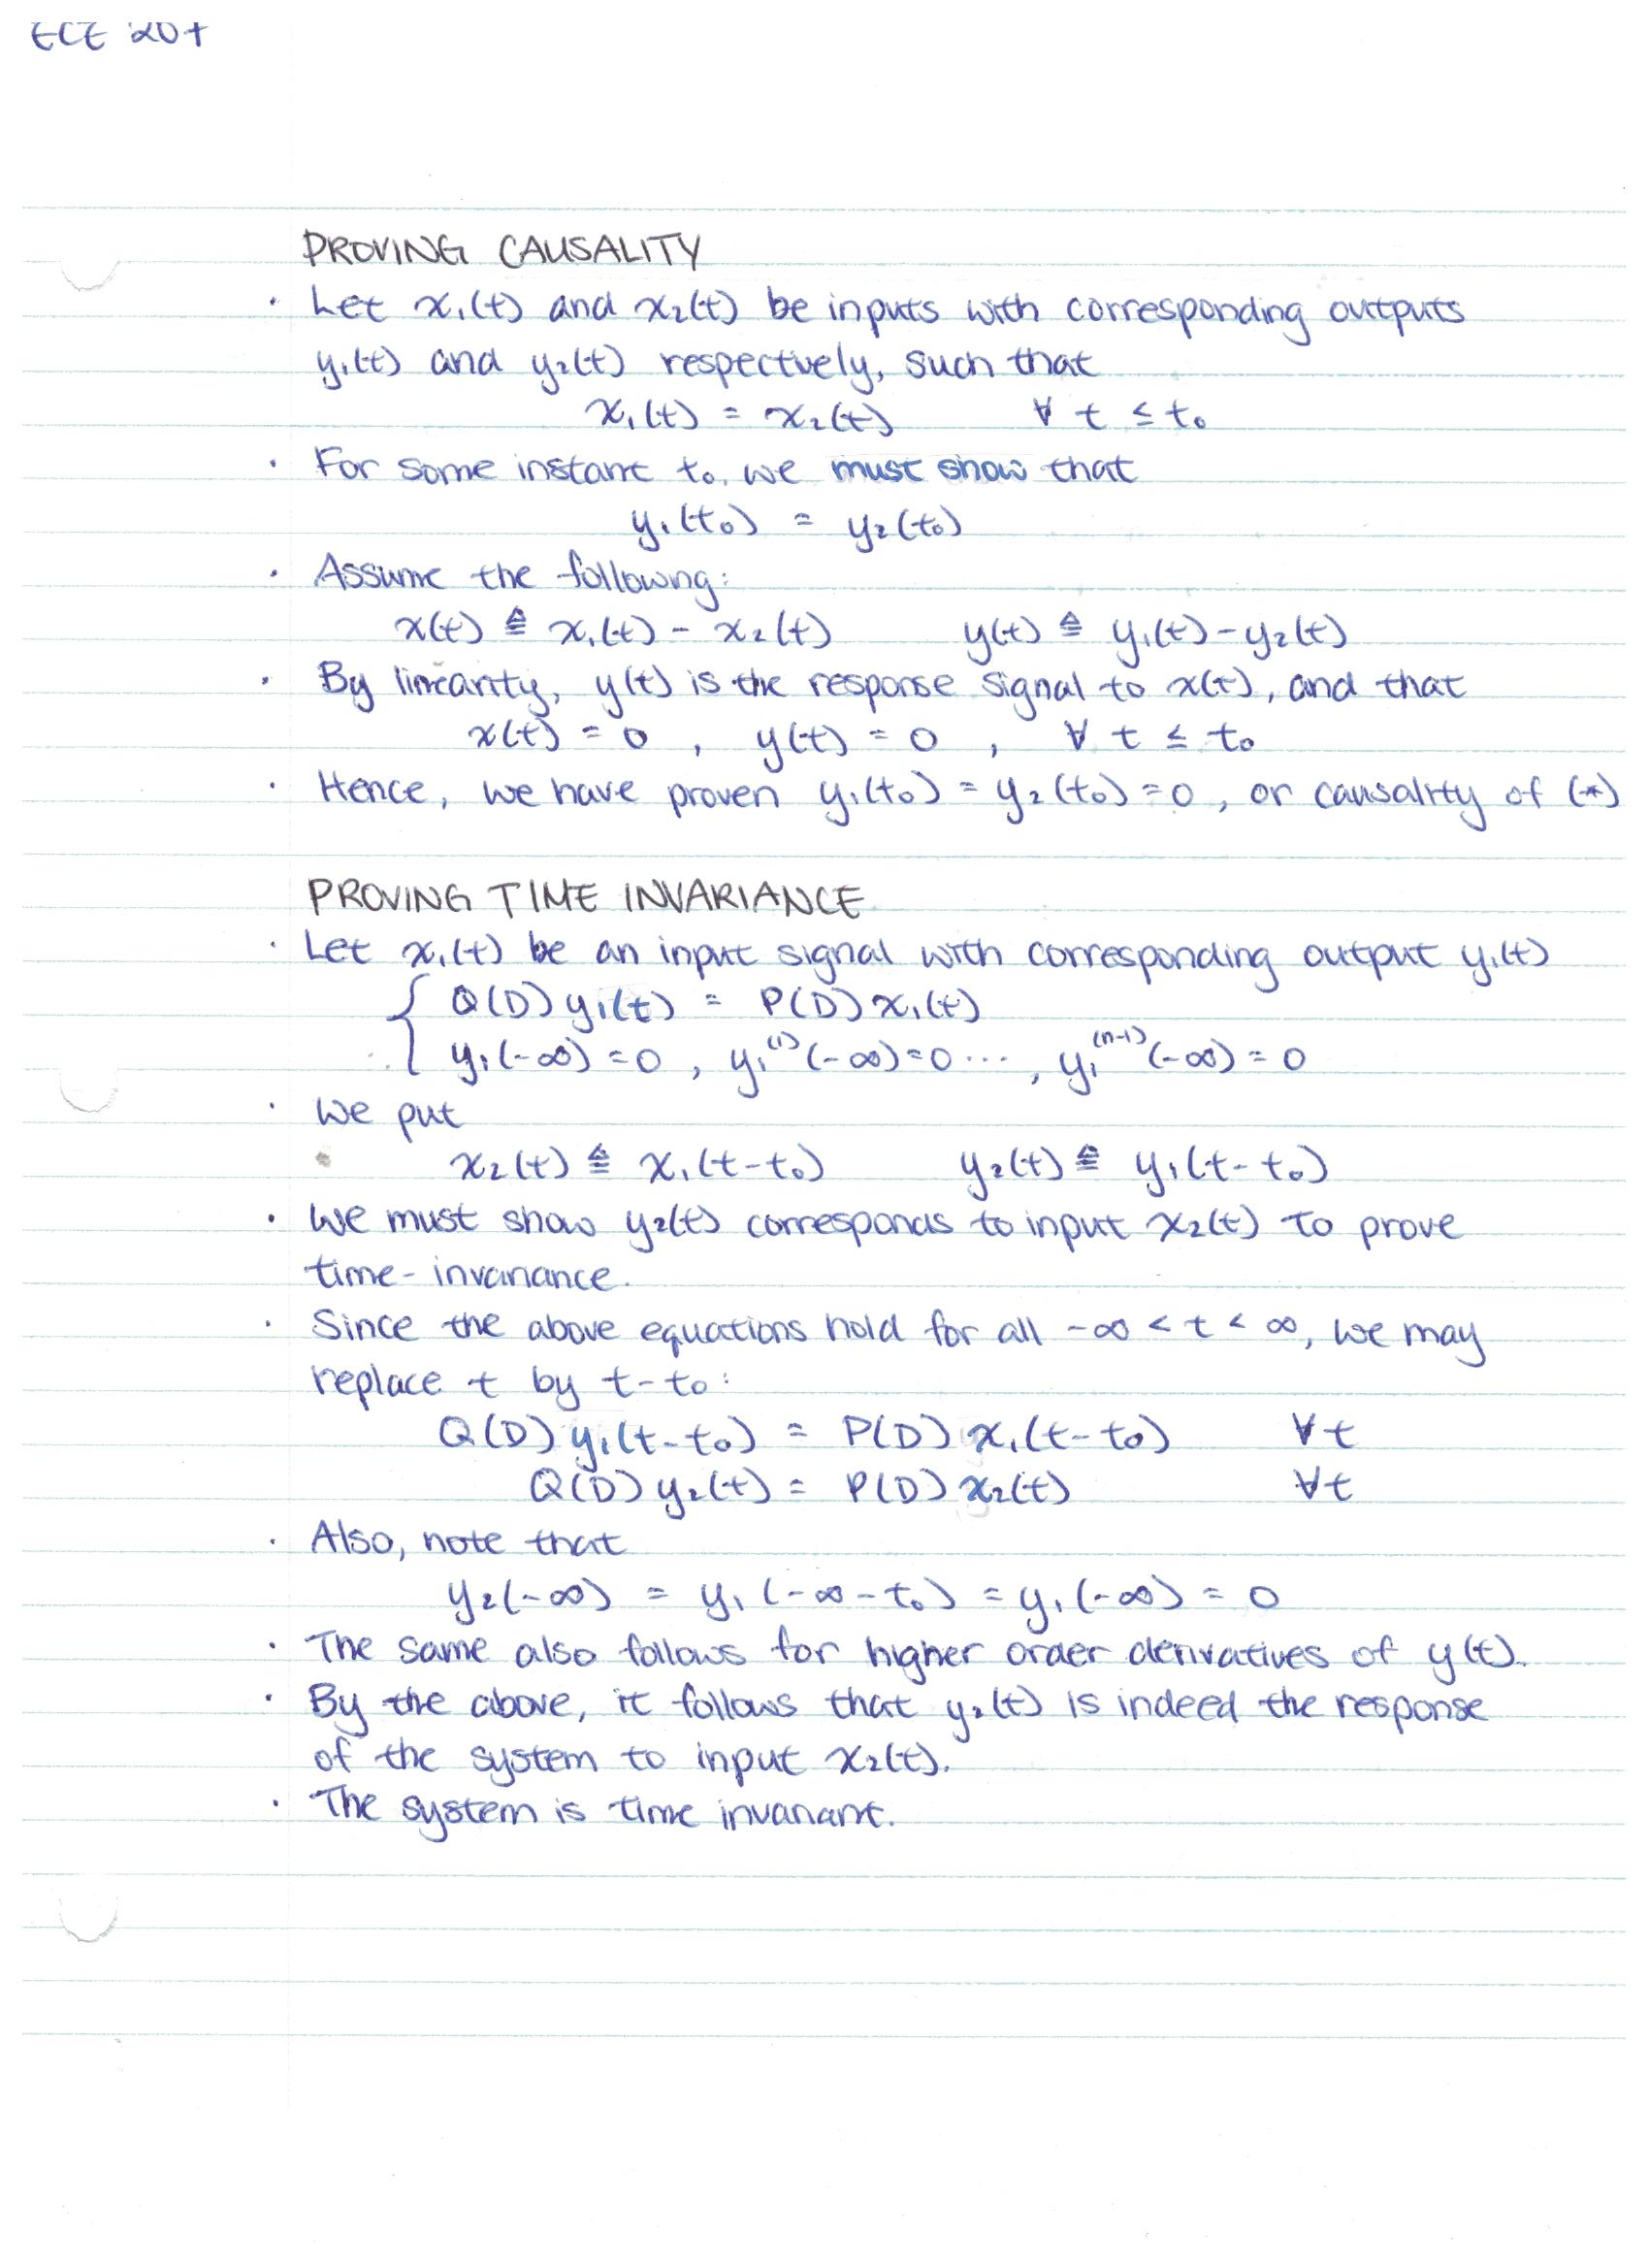 ECE 207
PROVING CAUSALITY
· Let x₁(t) and x₂(t) be inputs with corresponding outputs
y₁(t) and y₂(t) respectively, such that
x₁(t) = x₂(t) ∀ t ≤ t₀
· For some instant t₀, we must show that
y₁(t₀) = y₂(t₀)
· Assume the following:
x(t) ≜ x₁(t) - x₂(t) y(t) ≜ y₁(t) - y₂(t)
· By linearity, y(t) is the response signal to x(t), and that
x(t) = 0 , y(t) = 0 , ∀ t ≤ t₀
· Hence, we have proven y₁(t₀) = y₂(t₀) = 0, or causality of (*)
PROVING TIME INVARIANCE
· Let x₁(t) be an input signal with corresponding output y₁(t)
{ Q(D) y₁(t) = P(D) x₁(t)
y₁(-∞) = 0 , y₁⁽¹⁾(-∞) = 0 ... , y₁⁽ⁿ⁻¹⁾(-∞) = 0
· We put
x₂(t) ≜ x₁(t-t₀) y₂(t) ≜ y₁(t-t₀)
· We must show y₂(t) corresponds to input x₂(t) to prove
time-invariance.
· Since the above equations hold for all -∞ < t < ∞, we may
replace t by t-t₀:
Q(D) y₁(t-t₀) = P(D) x₁(t-t₀) ∀t
Q(D) y₂(t) = P(D) x₂(t) ∀t
· Also, note that
y₂(-∞) = y₁(-∞-t₀) = y₁(-∞) = 0
· The same also follows for higher order derivatives of y(t).
· By the above, it follows that y₂(t) is indeed the response
of the system to input x₂(t).
· The system is time invariant.